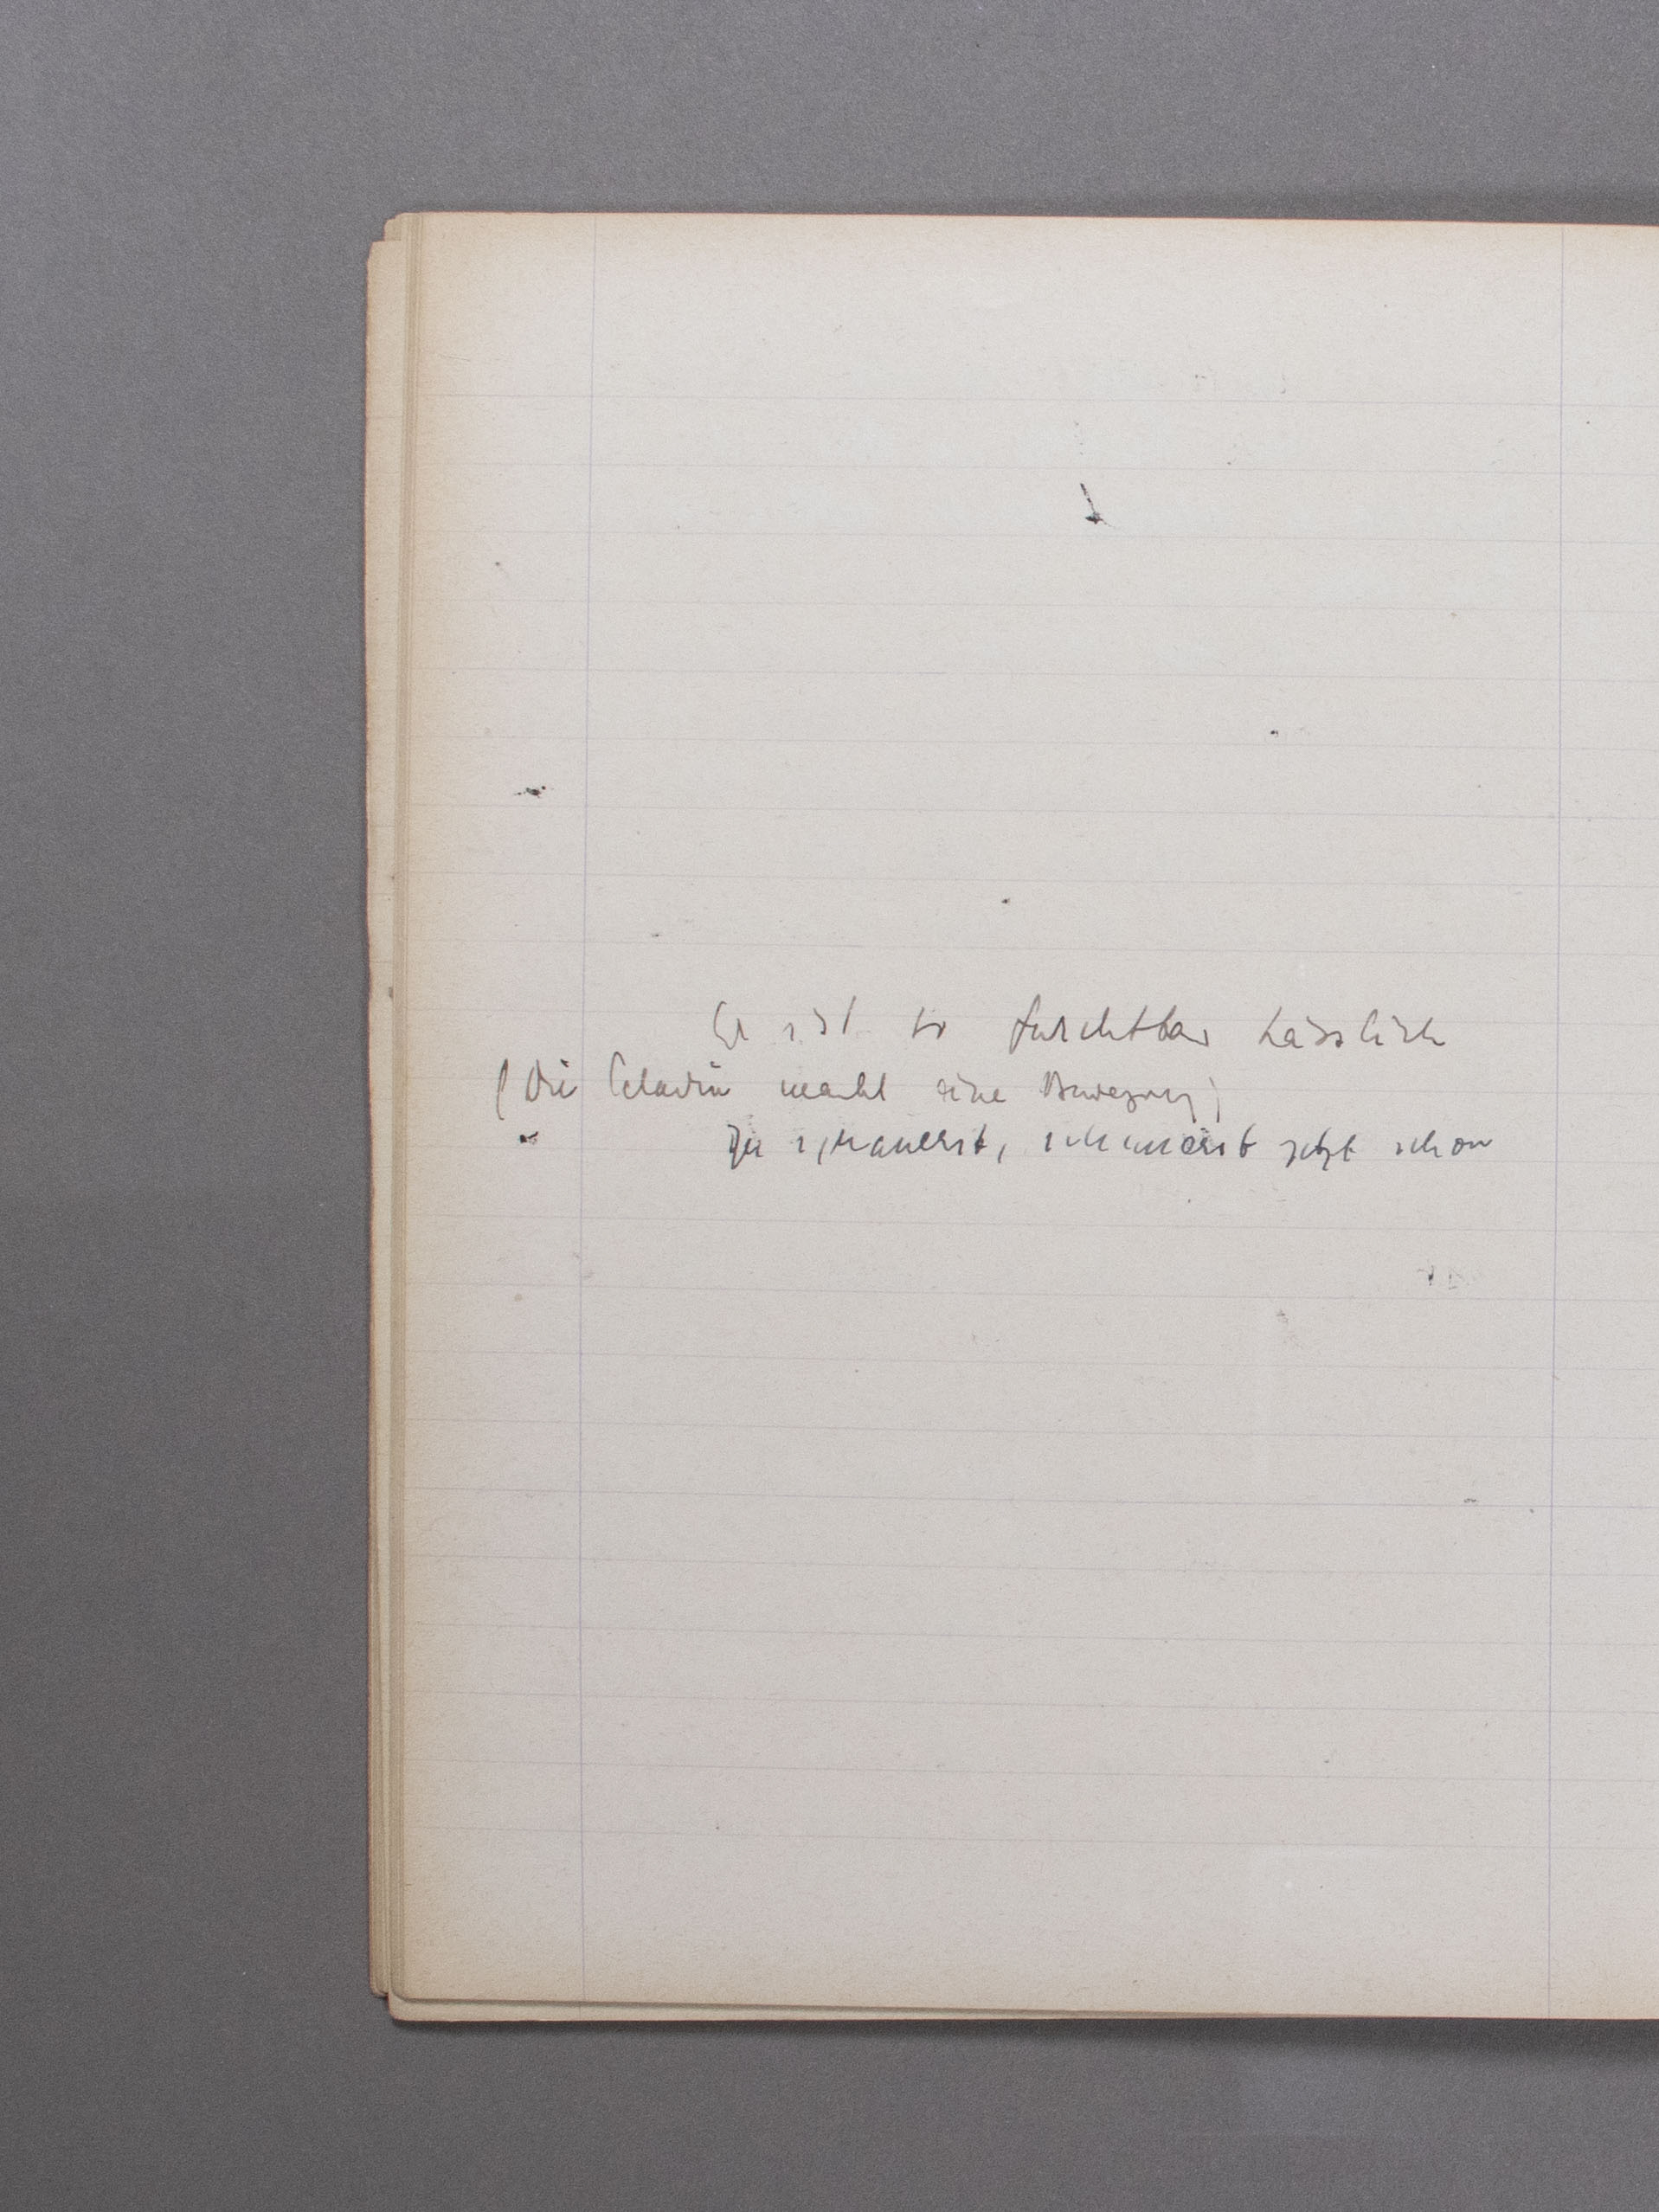 Er ist so furchtbar hässlich
(Die Sclavin macht eine Bewegung)
Du schauerst, jetzt schon